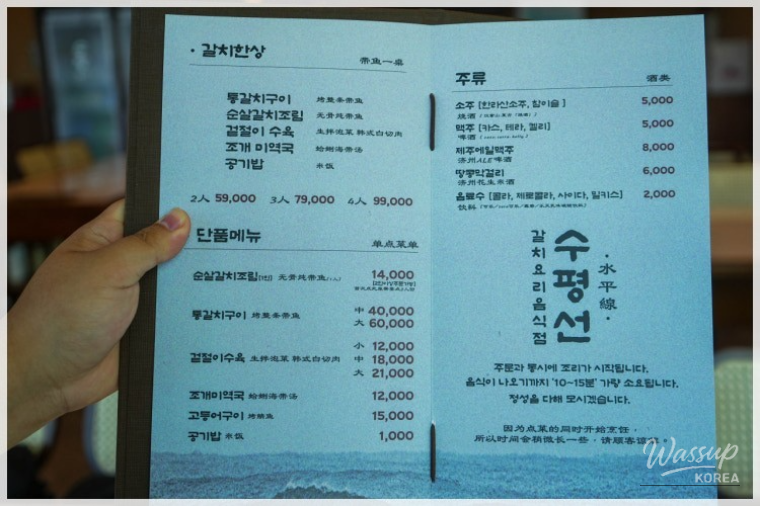 · 갈치한상 带鱼一桌
통갈치구이 烤整条带鱼
순살갈치조림 无骨炖带鱼
겉절이 수육 生拌泡菜 韩式白切肉
조개 미역국 蛤蜊海带汤
공기밥 米饭
2人 59,000 3人 79,000 4人 99,000
단품메뉴 单点菜单
순살갈치조림 无骨炖带鱼 14,000
통갈치구이 烤整条带鱼 中 40,000
大 60,000
小 12,000
겉절이수육 生拌泡菜 韩式白切肉 中 18,000
大 21,000
조개미역국 蛤蜊海带汤 12,000
고등어구이 烤鲭鱼 15,000
공기밥 米饭 1,000
주류 酒类
소주 [한라산소주, 참이슬] 5,000
烧酒
맥주 [카스, 테라, 켈리] 5,000
啤酒
제주에일맥주 8,000
济州ALE啤酒
땅콩막걸리 6,000
济州花生米酒
음료수 [콜라, 제로콜라, 사이다, 밀키스] 2,000
饮料
갈치요리음식점
수평선
· 水平線 ·
주문과 동시에 조리가 시작됩니다.
음식이 나오기까지 '10~15분' 가량 소요됩니다.
정성을 다해 모시겠습니다.
因为点菜的同时开始烹饪,
所以时间会稍微长一些, 请顾客谅
Wassup
KOREA